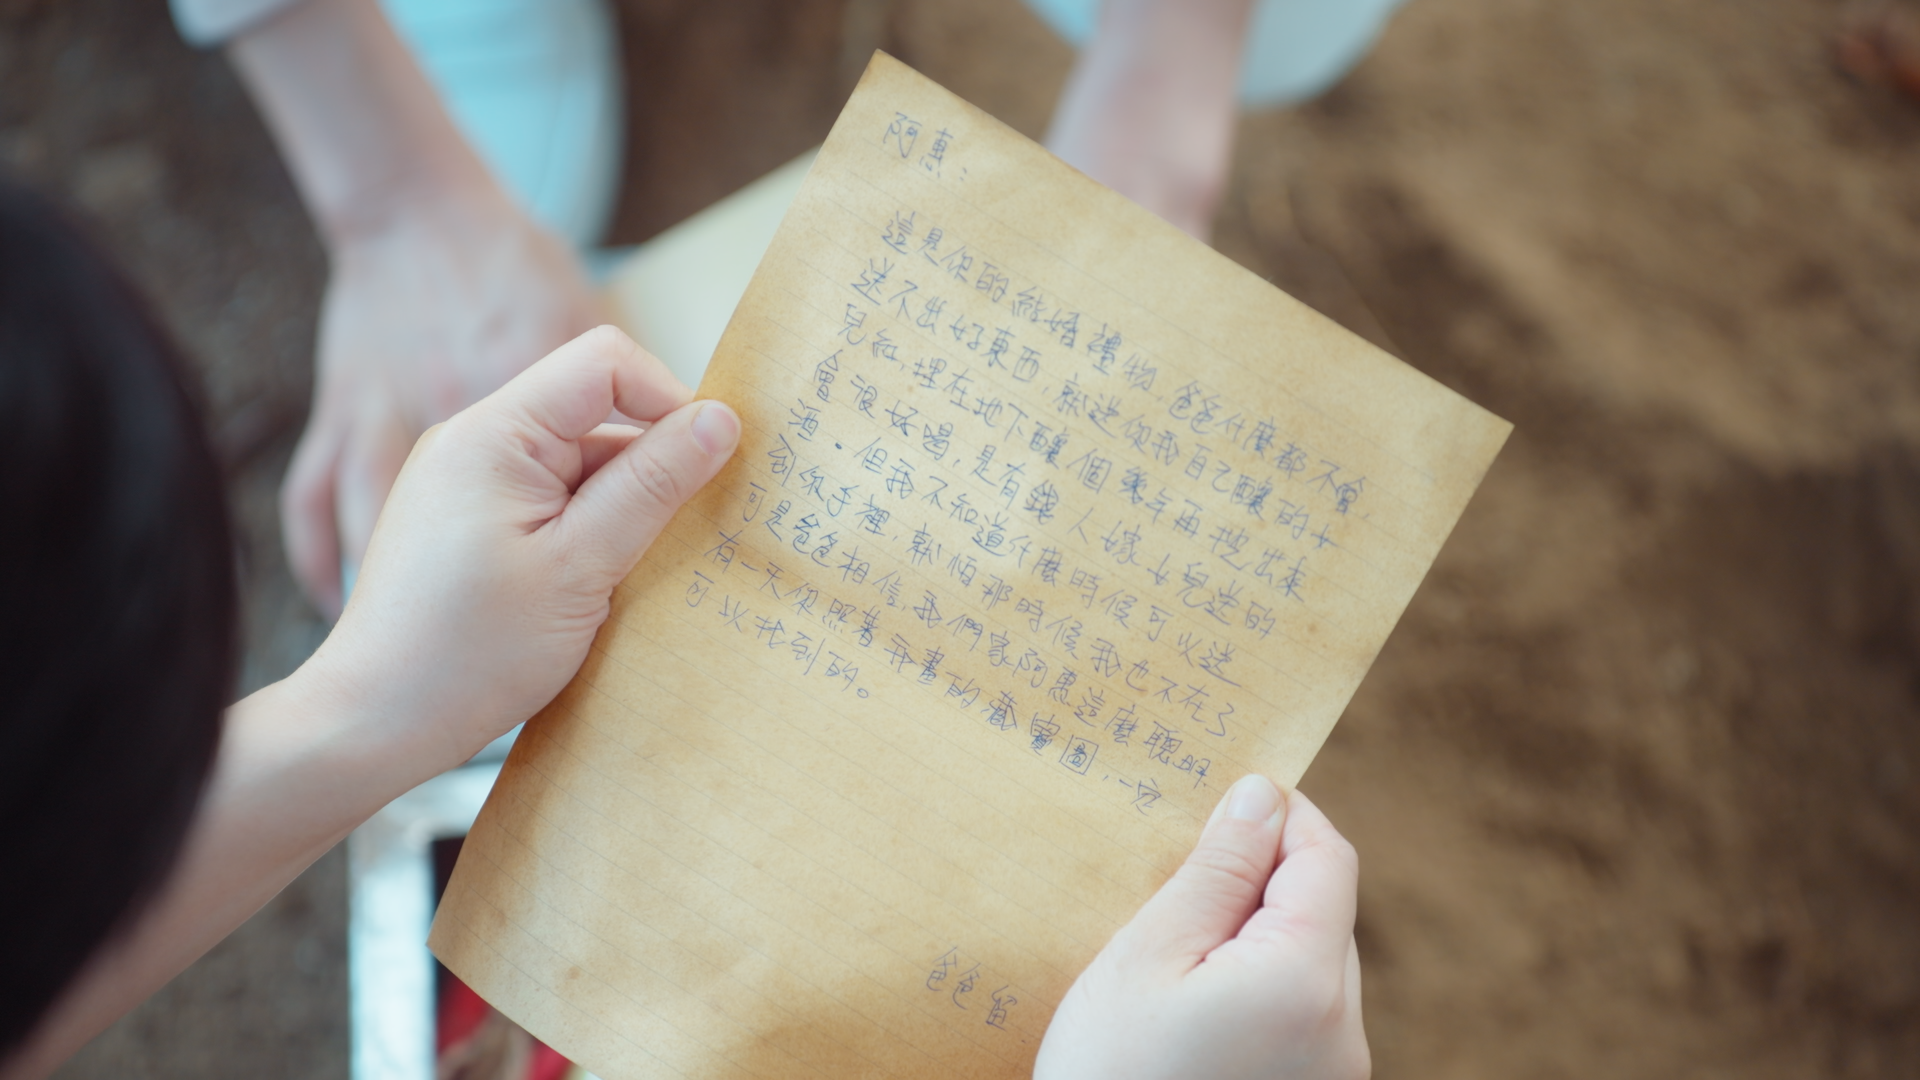 阿惠：
這是你的結婚禮物，爸爸什麼都不會，
送不出好東西，就送你我自己釀的女
兒紅，埋在地下釀個幾年再挖出來
會很好喝，是有錢人嫁女兒送的
酒。但我不知道什麼時候可以送
到你手裡，就怕那時候我也不在了，
可是爸爸相信，我們家阿惠這麼聰明，
有一天你照著我畫的藏寶圖，一定
可以找到的。
爸爸 留